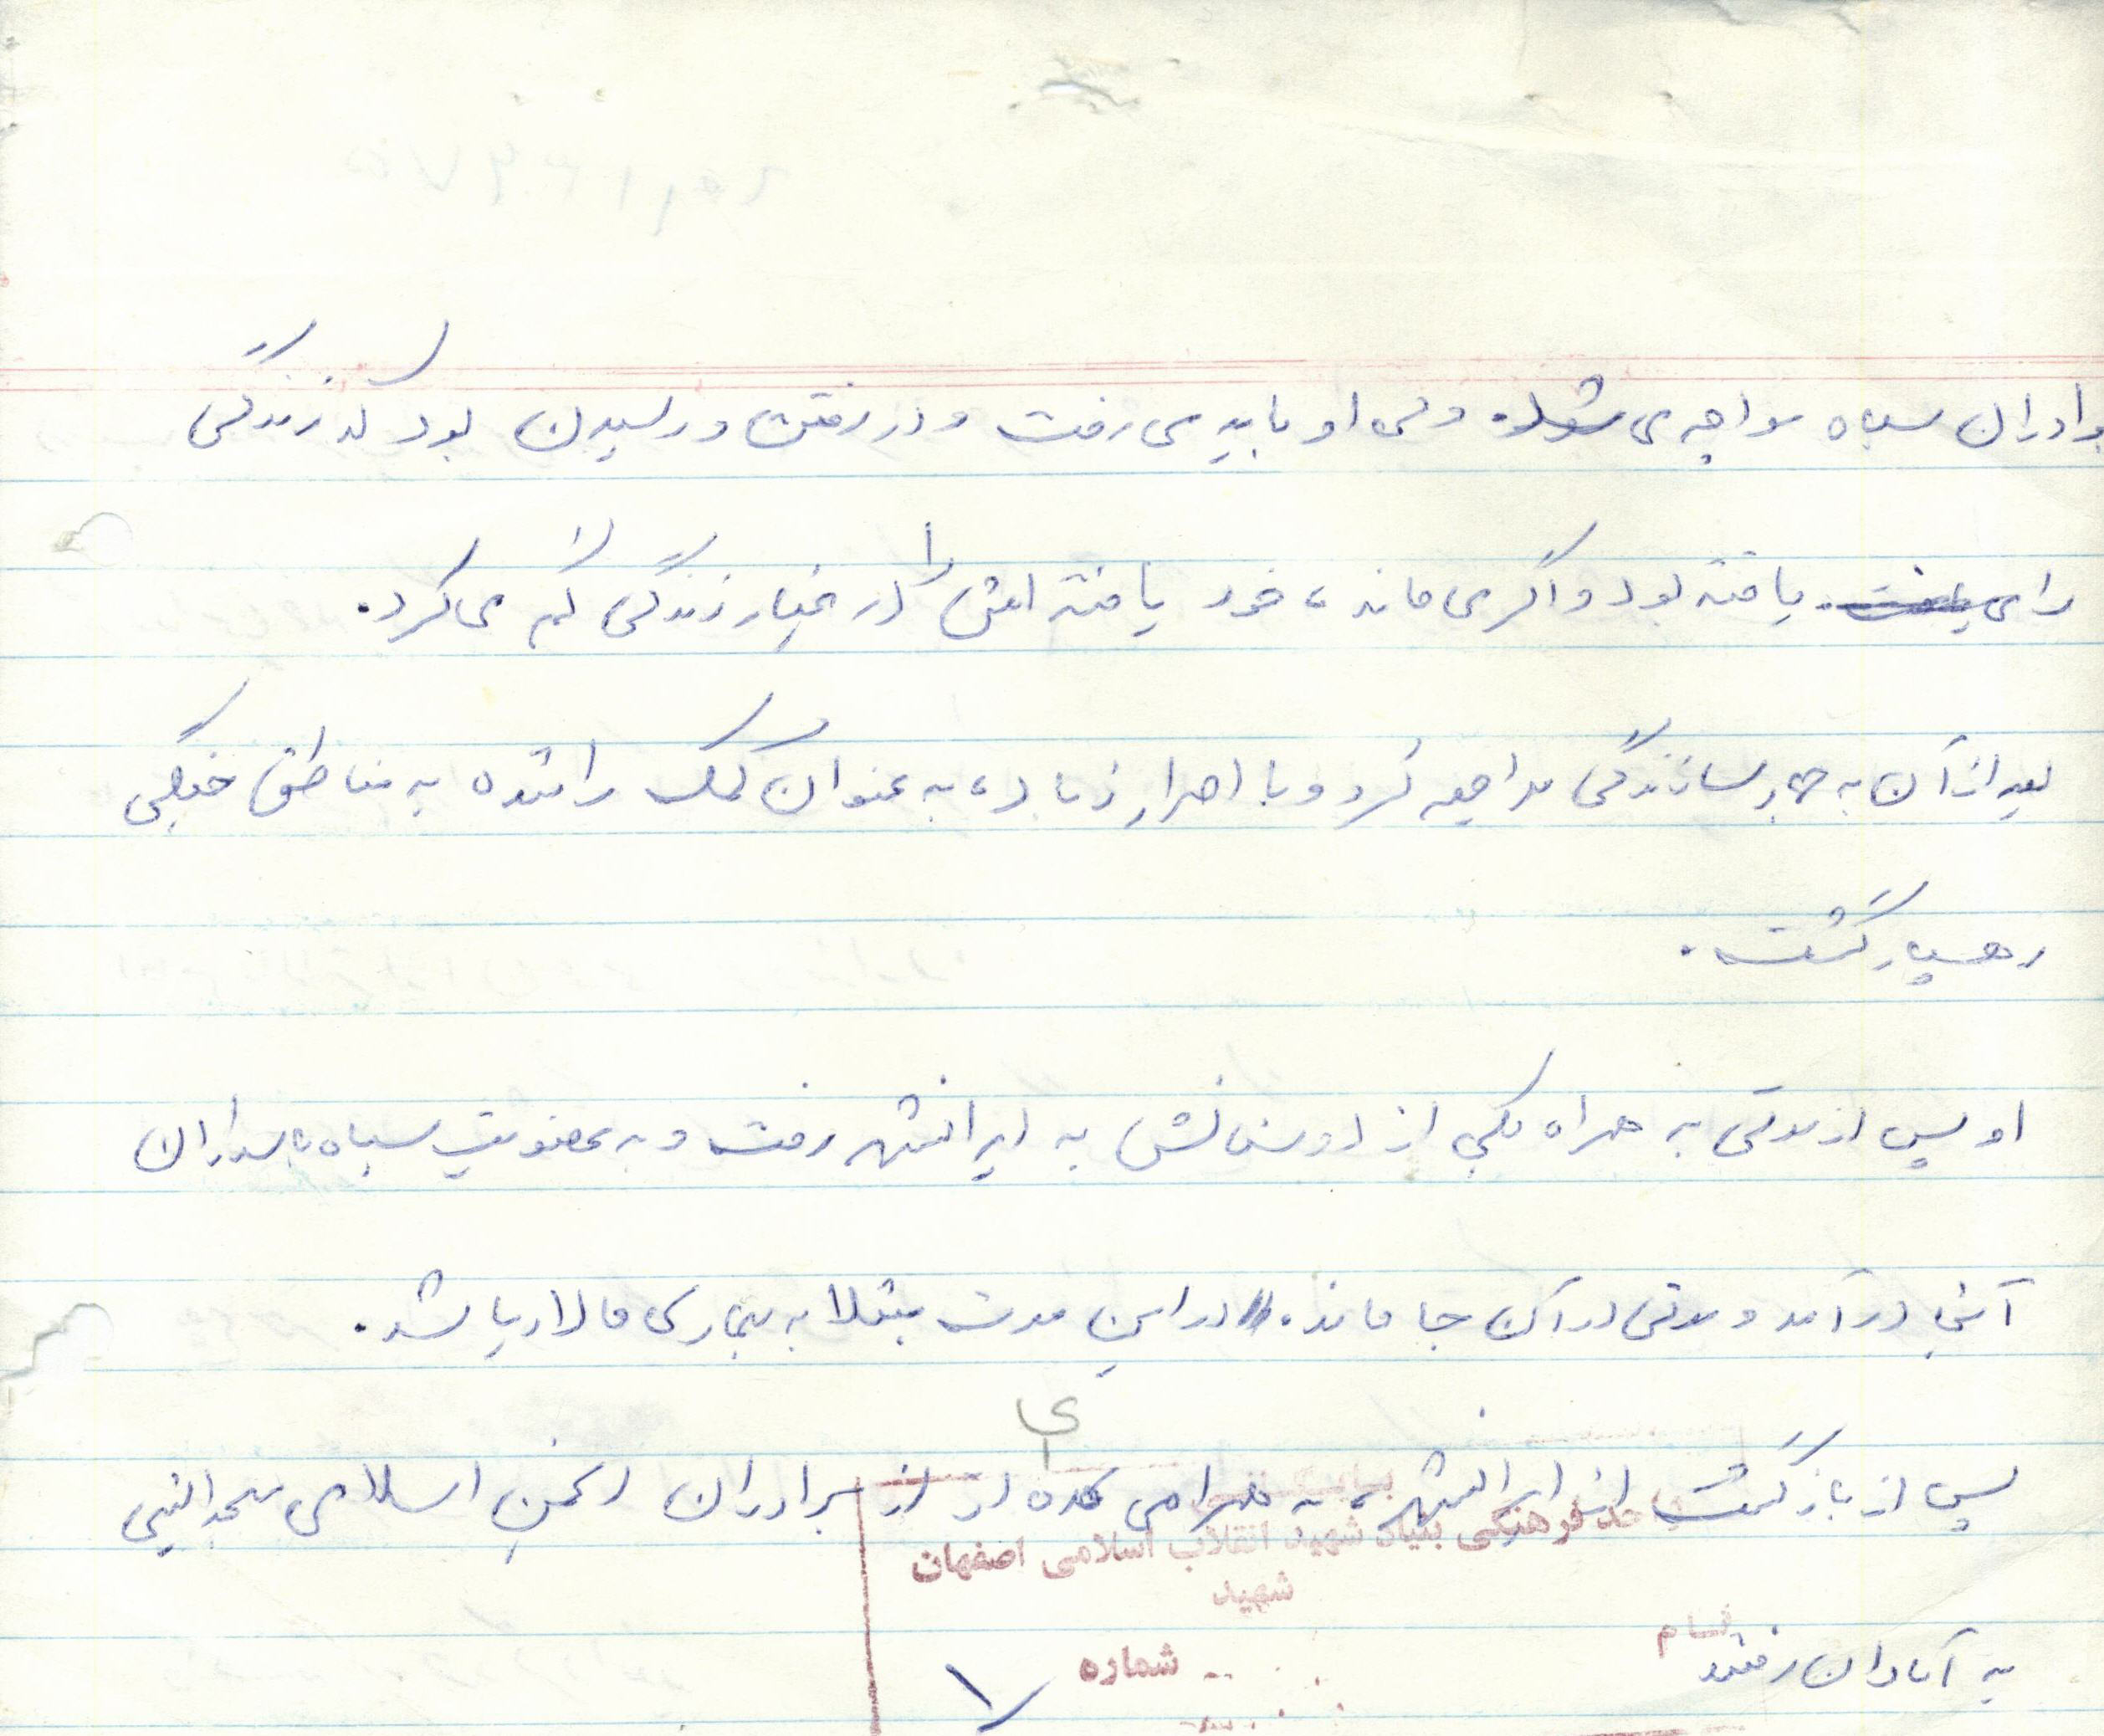 برادران سپاه مواجه می شد. ولی او باید می رفت و در رفتن و رسیدن بود که زندگی
را می یافت. یافته بود و اگر می ماند، خود یافته اش را در غبار زندگی گم می کرد.
بعد از آن به جهاد سازندگی مراجعه کرد و با اصرار زیاد، به عنوان کمک راننده به مناطق جنگی
رهسپار گشت.
او پس از مدتی به همراه یکی از دوستانش به ایرانشهر رفت و به عضویت سپاه پاسداران
آنجا درآمد و مدتی در آن جا ماند. در این مدت مبتلا به بیماری مالاریا شد.
پس از بازگشت از ایرانشهر، به همراهی عده ای از برادران انجمن اسلامی مسجد النبی
واحد فرهنگی بنیاد شهید انقلاب اسلامی اصفهان
شهید
نام
به آبادان رفتند
شماره
۷